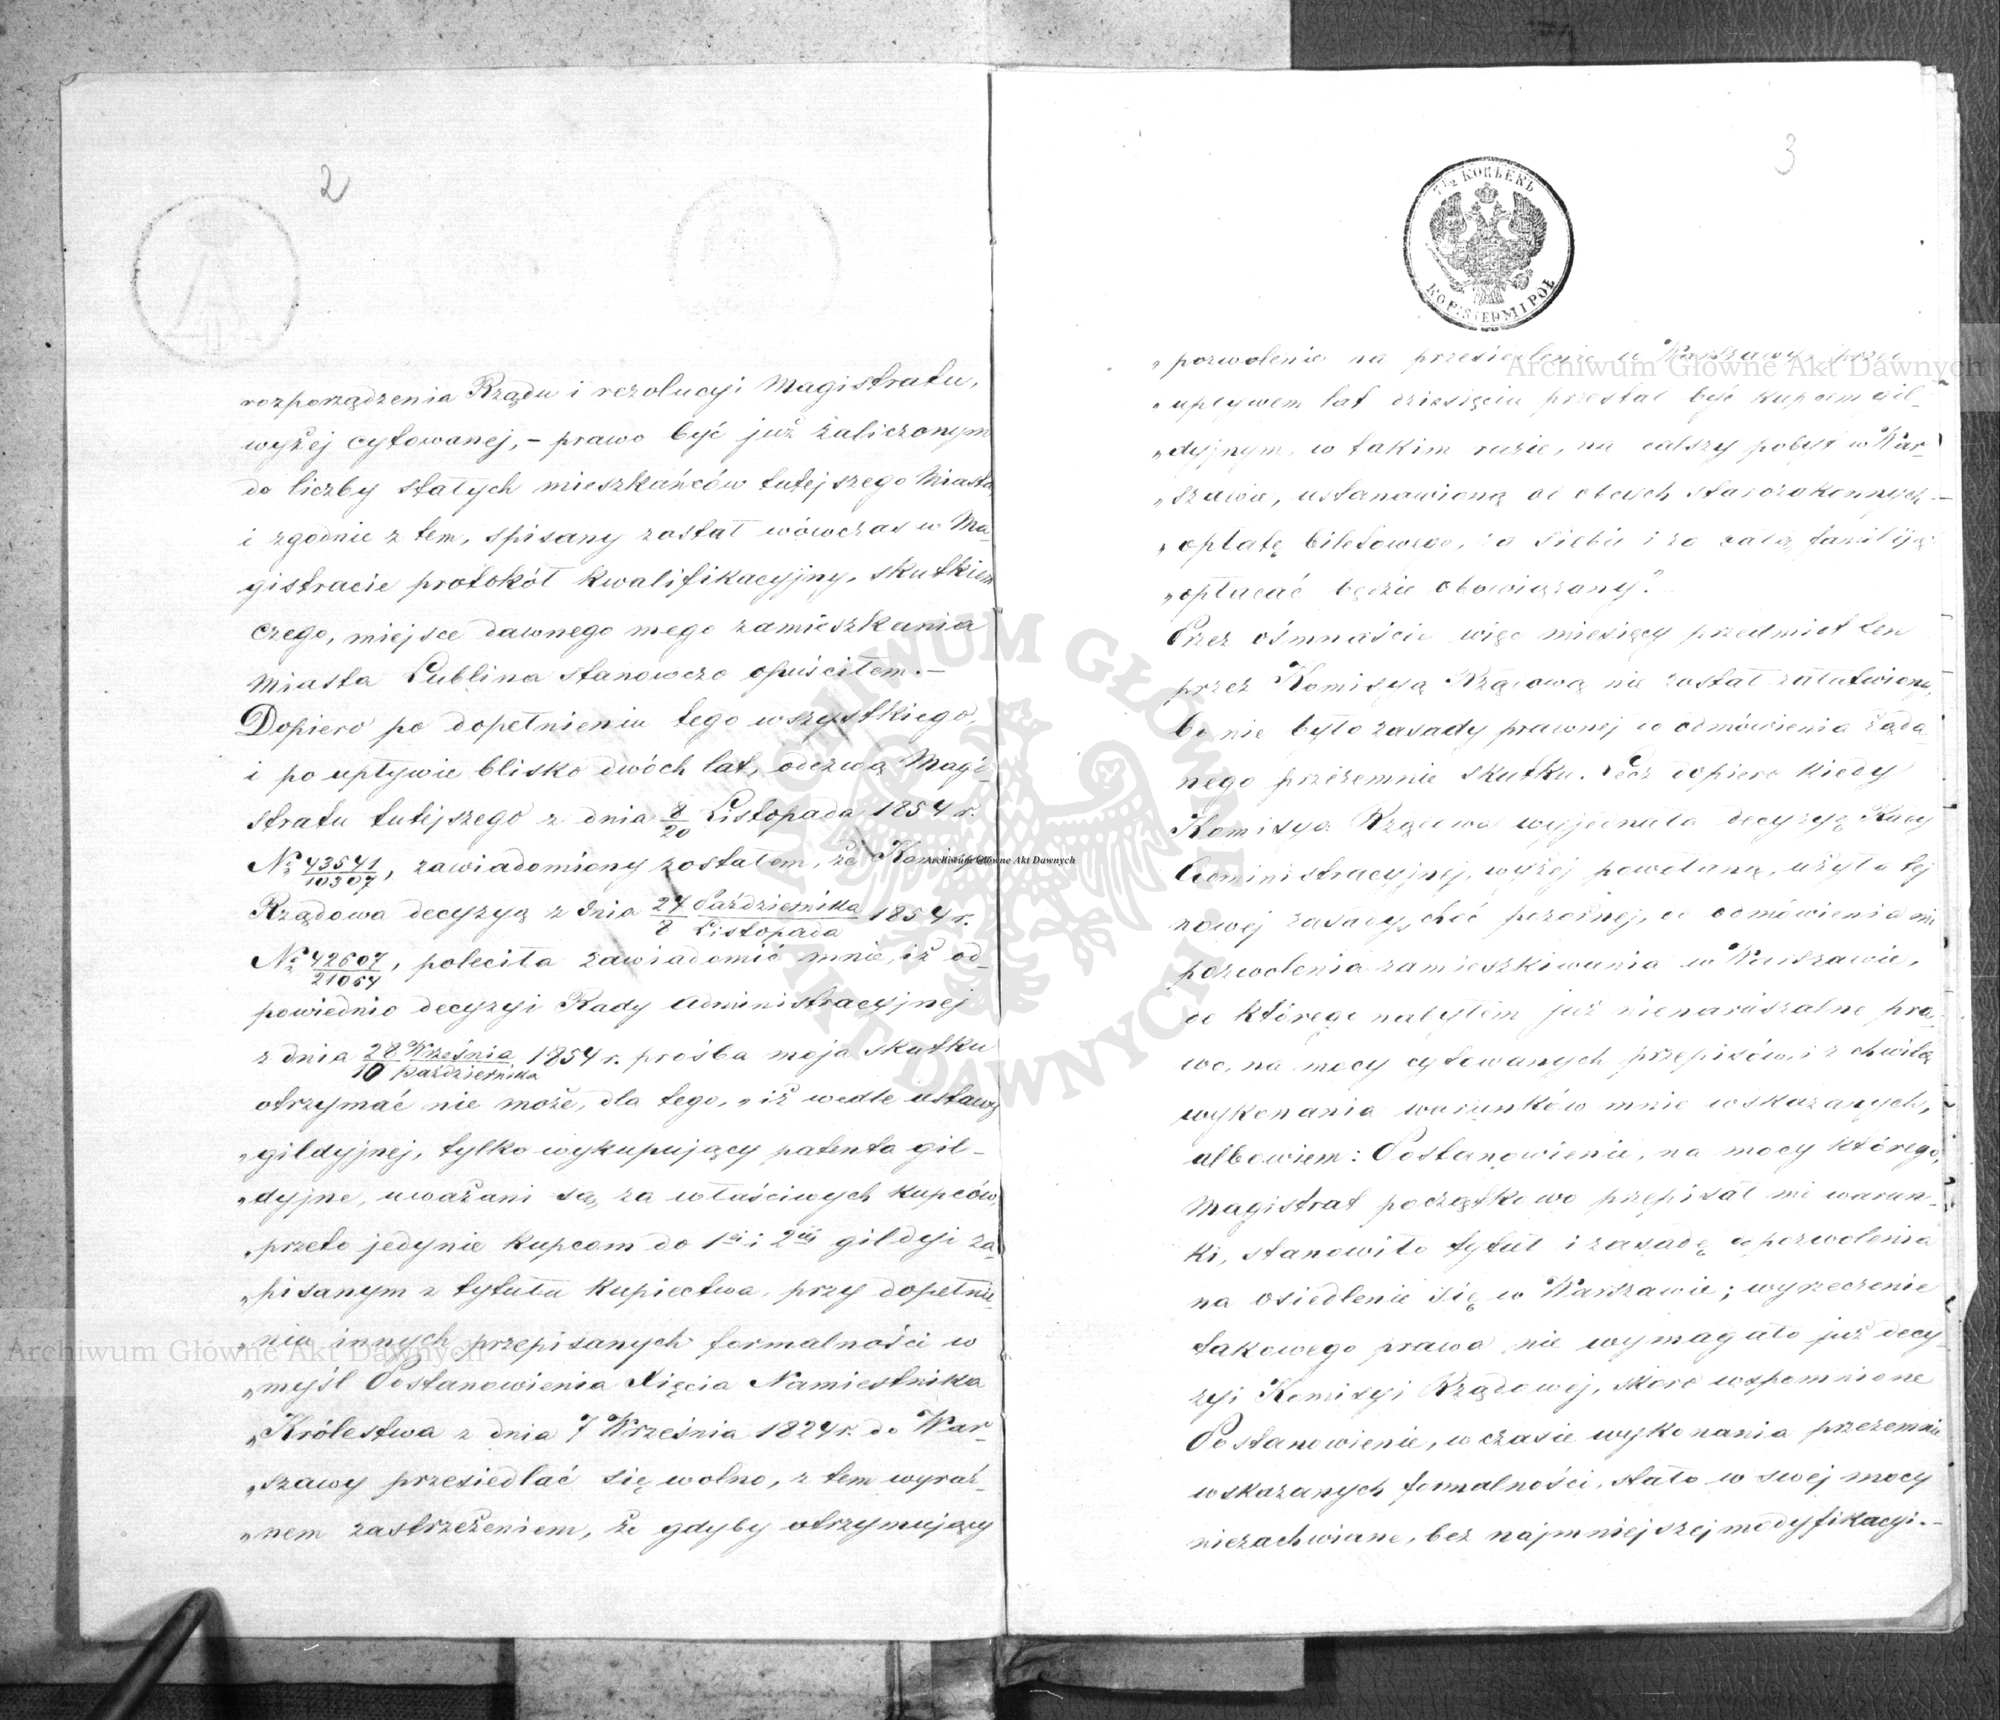 2
rozporządzenia Rządu i rezolucyi Magistratu,
wyżej cytowanej, – prawo być już zaliczonym
do liczby stałych mieszkańców tutejszego Miasta
i zgodnie z tem, spisany został wówczas w Ma-
gistracie protokół kwalifikacyjny, skutkiem
czego, miejsce dawnego mego zamieszkania
Miasta Lublina stanowczo opuściłem. –
Dopiero po dopełnieniu tego wszystkiego,
i po upływie blisko dwóch lat, odezwą Magi-
stratu tutejszego z dnia 8/20 Listopada 1854 r.
No 43541/10307, zawiadomiony zostałem, że Komisya
Rządowa decyzyą z dnia 27 Października/8 Listopada 1854 r.
No 42607/21064, poleciła zawiadomić mnie, iż od-
powiednio decyzyi Rady Administracyjnej
z dnia 28 Września/10 Października 1854 r. prośba moja skutku
otrzymać nie może, dla tego, „iż wedle ustawy
„gildyjnej, tylko wykupujący patenta gil-
„dyjne, uważani są, za właściwych kupców,
„przeto jedynie kupcom do 1éj i 2éj gildyi za-
„pisanym z tytułu kupiectwa, przy dopełnie-
„niu innych przepisanych formalności w
„myśl Postanowienia Xięcia Namiestnika
„Królestwa z dnia 7 Września 1824 r. do War-
„szawy przesiedlać się wolno, z tem wyraź-
„nem zastrzeżeniem, że gdyby otrzymujący
3
7½ КОПѢЕКЪ
KOP: SIEDM I PÓŁ
„pozwolenie na przesiedlenie do Warszawy, przed
„upływem lat dziesięciu przestał być kupcem gil-
„dyjnym, w takim razie, na dalszy pobyt w War-
„szawie, ustanowioną od obcych starozakonnych –
„opłatę biletowego, za siebie i za całą familiją
„opłacać będzie obowiązany".
Przez ośmnaście więc miesięcy przedmiot ten
przez Komisyą Rządową nie został załatwiony,
bo nie było zasady prawnej do odmówienia żąda-
nego przezemnie skutku. Lecz dopiero kiedy
Komisya Rządowa wyjednała decyzyę Rady
Administracyjnej, wyżej powołaną, użyto tej
nowej zasady, choć pozornej, do odmówienia mi
pozwolenia zamieszkiwania w Warszawie,
do którego nabyłem już nienaruszalne pra-
wo, na mocy cytowanych przepisów, i z chwilą
wykonania warunków mnie wskazanych,
albowiem: Postanowienie, na mocy którego,
Magistrat początkowo przepisał mi warun-
ki, stanowiło tytuł i zasadę do pozwolenia
na osiedlenie się w Warszawie; wyrzeczenie
takowego prawa nie wymagało już decy-
zyi Komisyi Rządowej, skoro wspomnione
Postanowienie, w czasie wykonania przezemnie
wskazanych formalności, stało w swej mocy
niezachwiane, bez najmniejszej modyfikacyi. –
Archiwum Główne Akt Dawnych
Archiwum Główne Akt Dawnych
Archiwum Główne Akt Dawnych
ARCHIWUM GŁÓWNE AKT DAWNYCH